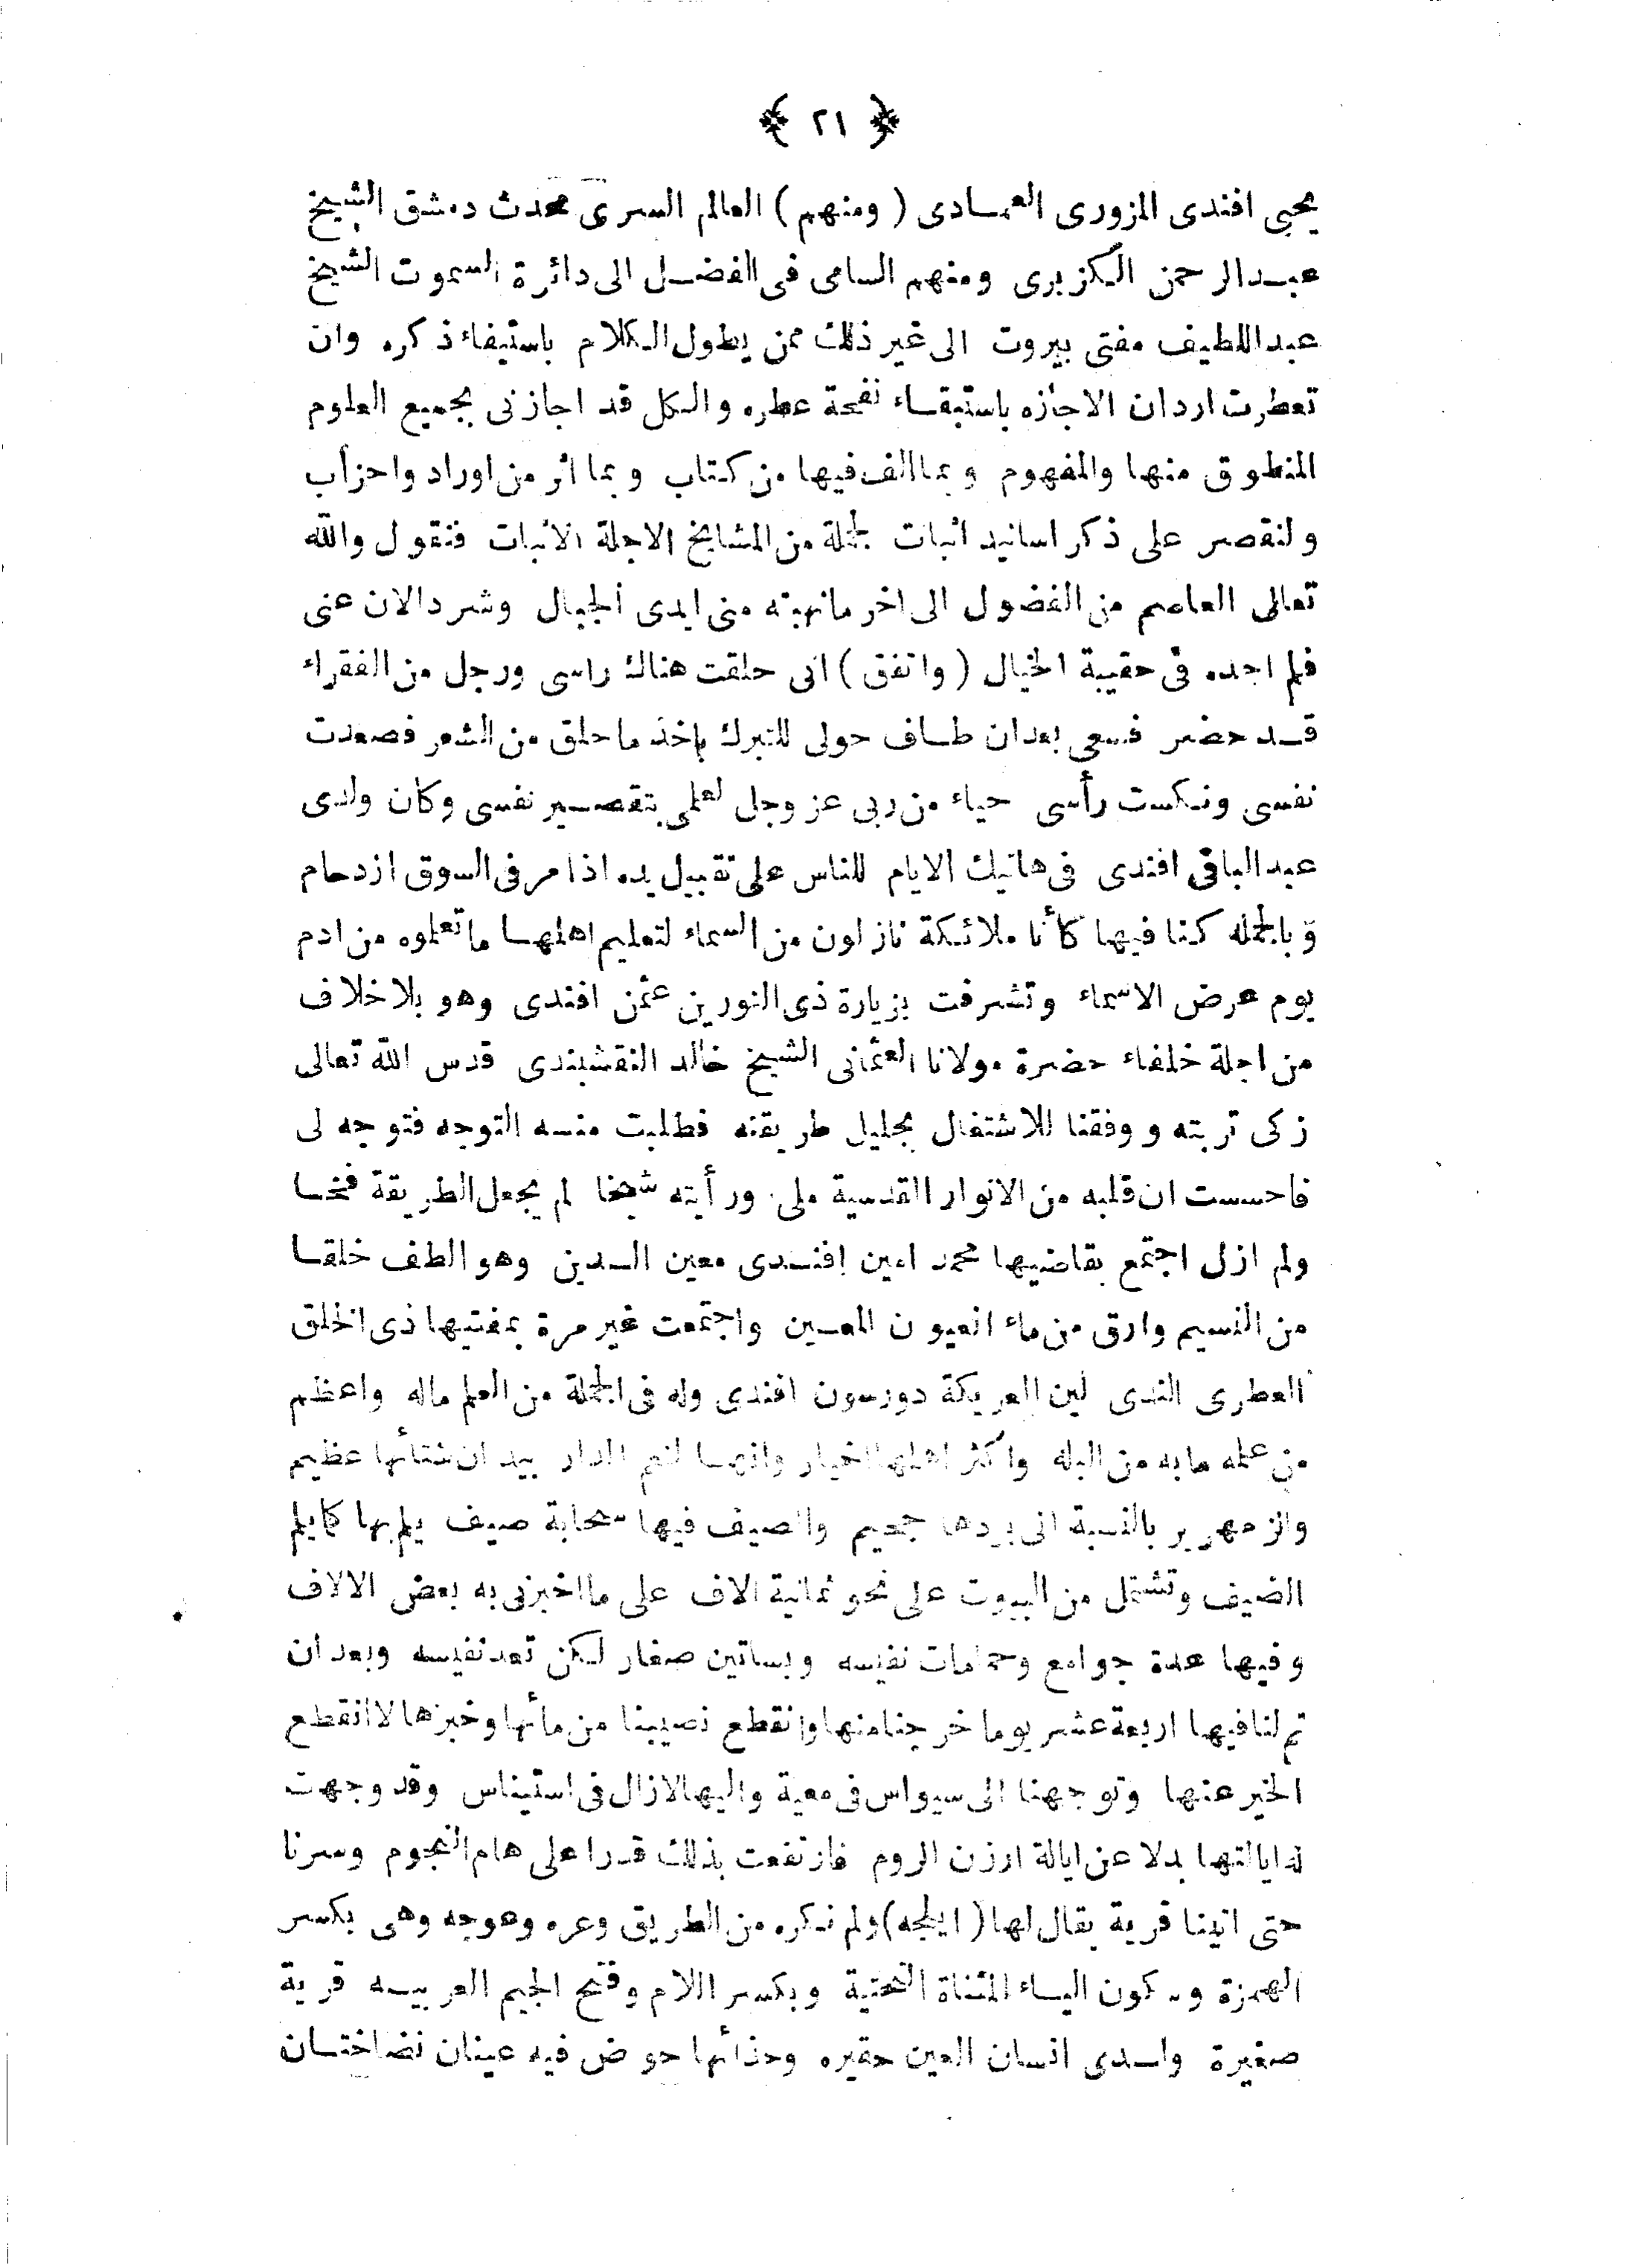 ﴿ ٢١ ﴾
يحيى افندى المزورى العمادى ( ومنهم ) العالم السرى محدث دمشق الشيخ
عبدالرحمن الكزبرى ومنهم السامى فى الفضل الى دائرة السموت الشيخ
عبداللطيف مفتى بيروت الى غير ذلك ممن يطول الكلام باستيفاء ذكره وان
تعطرت اردان الاجازه باستبقاء نفحة عطره والكل قد اجازنى بجميع العلوم
المنطوق منها والمفهوم وبما الف فيها من كتاب وبما اثر من اوراد واحزاب
ولنقصر على ذكر اسانيد اثبات لجملة من المشايخ الاجلة الاثبات فنقول والله
تعالى العاصم من الفضول الى اخر ما نهبته منى ايدى الجبال وشرد الان عنى
فلم اجده فى حقيبة الخيال ( واتفق ) انى حلقت هناك راسى ورجل من الفقراء
قد حضر فسعى بعد ان طاف حولى للتبرك باخذ ما حلق من الشعر فصعدت
نفسى ونكست رأسى حياء من ربى عز وجل لعلمى بتقصير نفسى وكان ولدى
عبد الباقى افندى فى هاتيك الايام للناس على تقبيل يده اذا مر فى السوق ازدحام
وبالجمله كنا فيها كأنا ملائكة نازلون من السماء لتعليم اهلها ما تعلموه من ادم
يوم عرض الاسماء وتشرفت بزيارة ذى النورين عثمن افندى وهو بلا خلاف
من اجلة خلفاء حضرة مولانا العثمانى الشيخ خالد النقشبندى قدس الله تعالى
زكى تربته ووفقنا للاشتغال بجليل طريقته فطلبت منه التوجه فتوجه لى
فاحسست ان قلبه من الانوار القدسية ملى ورأيته شيخا لم يجعل الطريقة فخا
ولم ازل اجتمع بقاضيها محمد امين افندى معين الدين وهو الطف خلقا
من النسيم وارق من ماء العيون المعين واجتمعت غير مرة بمفتيها ذى الخلق
العطرى الندى لين العريكة دورسون افندى وله فى الجملة من العلم ماله واعظم
من علمه ما به من البله واكثر اهلها اخيار وانها لنعم الدار بيد ان شتائها عظيم
والزمهرير بالنسبة الى بردها جحيم والصيف فيها سحابة صيف يلم بها كما يلم
الضيف وتشتمل من البيوت على نحو ثمانية الاف على ما اخبرنى به بعض الالاف
وفيها عدة جوامع وحمامات نفيسه وبساتين صغار لكن تعد نفيسه وبعد ان
تم لنا فيها اربعة عشر يوما خرجنا منها وانقطع نصيبنا من مائها وخبزها لا انقطع
الخير عنها وتوجهنا الى سيواس فى معية واليها لازال فى استيناس وقد وجهت
له ايالتها بدلا عن ايالة ارزن الروم فارتفعت بذلك قدرا على هام النجوم وسرنا
حتى اتينا قرية يقال لها ( ايلجه ) ولم نكره من الطريق وعره وعوجه وهى بكسر
الهمزة وسكون الياء المثناة التحتية وبكسر اللام وفتح الجيم العربيه قرية
صغيرة ولدى انسان العين حقيره وحذائها حوض فيه عينان نضاختان